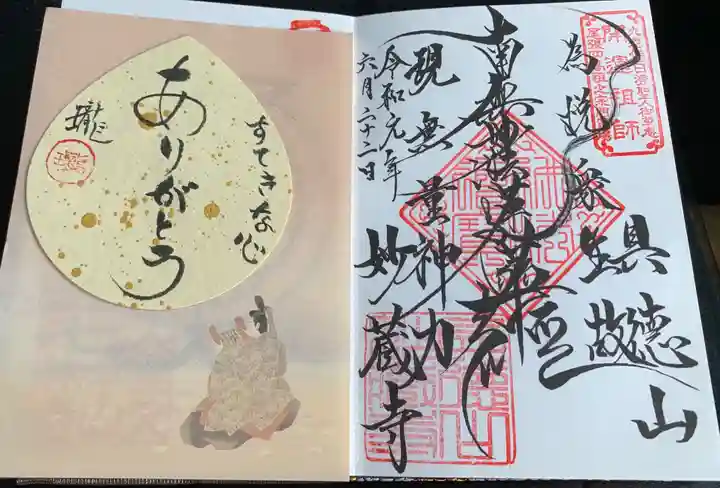 すてきな心
ありがとう
開運祖師
具徳山
為悦衆生故
南無妙法蓮華経
現無量神力
令和元年
六月二十二日
妙蔵寺